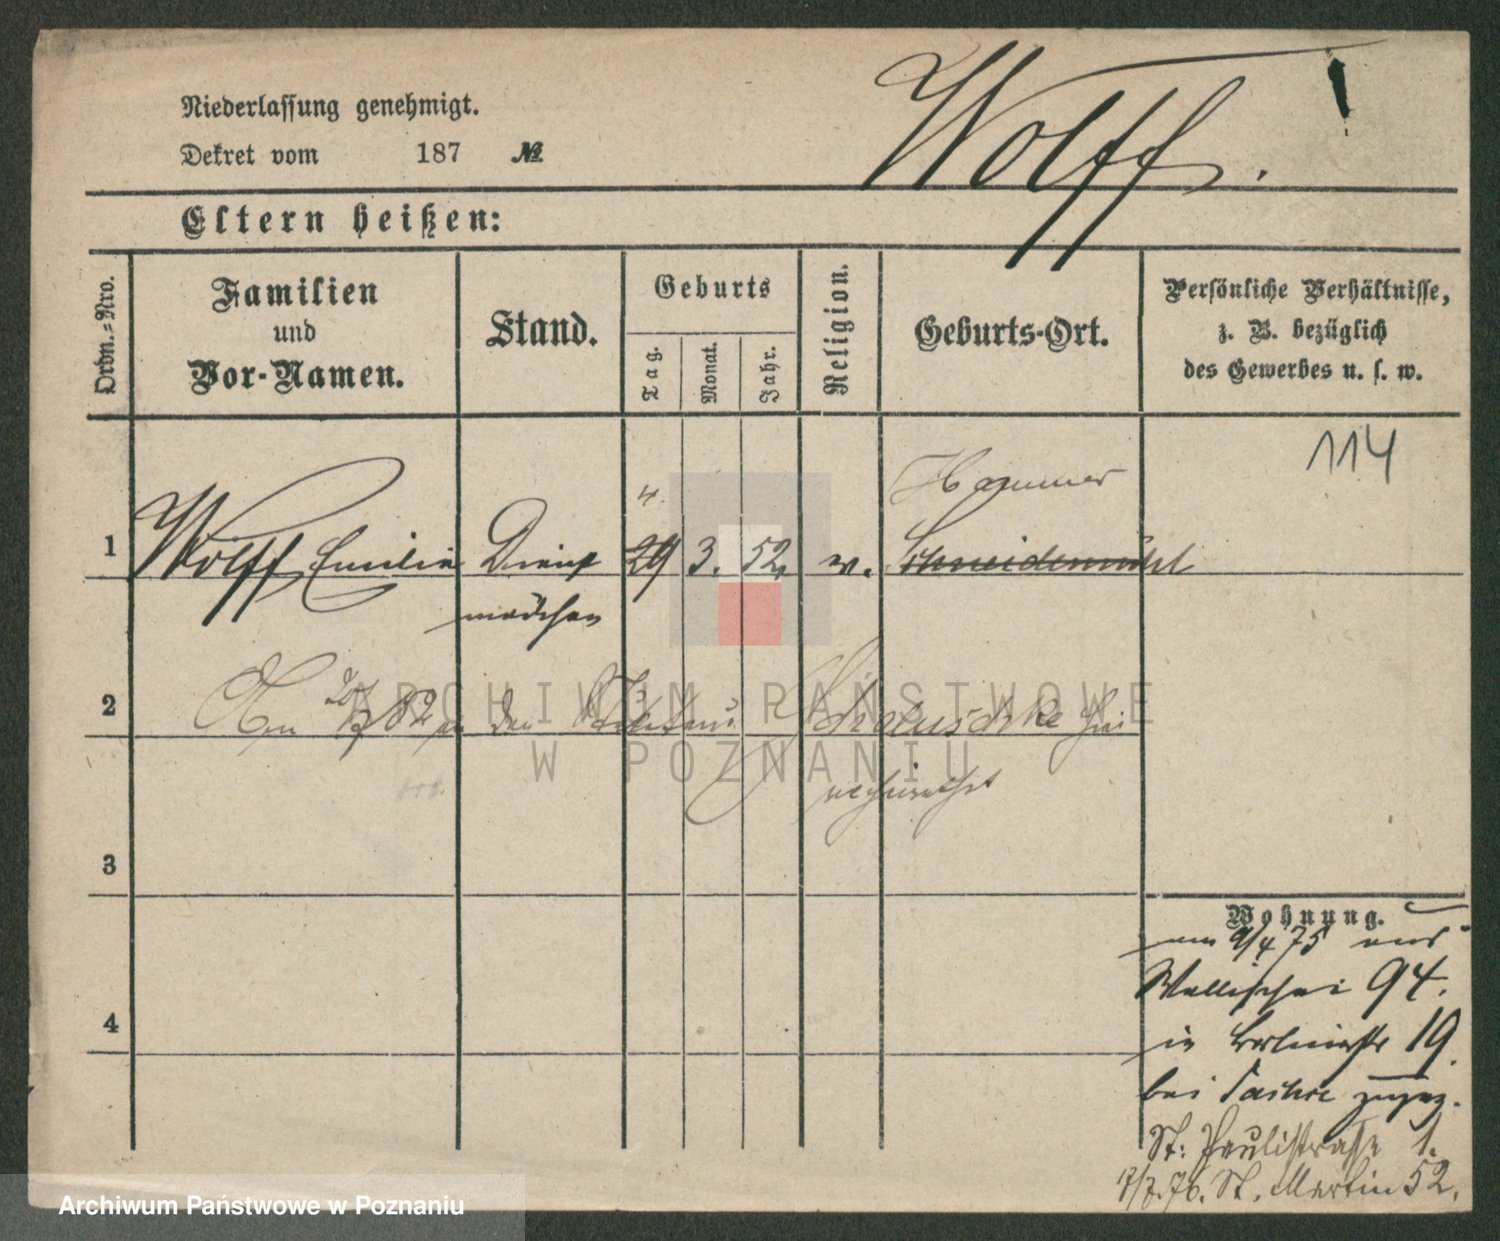 Wolff.
Niederlassung genehmigt.
Dekret vom 187 №
Eltern heißen:
Ordn.-Nro.
Familien
und
Vor-Namen.
Stand.
Geburts
Tag.
Monat.
Jahr.
Religion.
Geburts-Ort.
Persönliche Verhältnisse,
z. B. bezüglich
des Gewerbes u. s. w.
114
4. Hammer
1 Wolff Emilie Dienst 29 3. 52. Schneidemühl
mädchen
2 82 an den
verheirathet
3
4
Wohnung.
am 9/4 75 aus
Wallischei 94.
in 19.
bei zugez.
St: Paulistrasse 1.
St. Martin 52.
ARCHIWUM PAŃSTWOWE
W POZNANIU
Archiwum Państwowe w Poznaniu